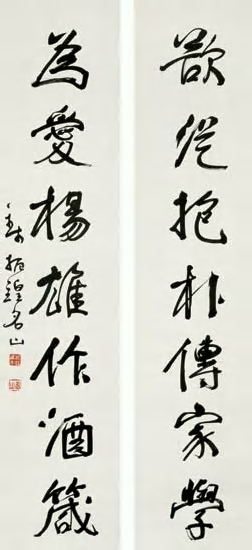 欲從抱朴傳家學
為愛楊雄作酒箴
振鍠名山